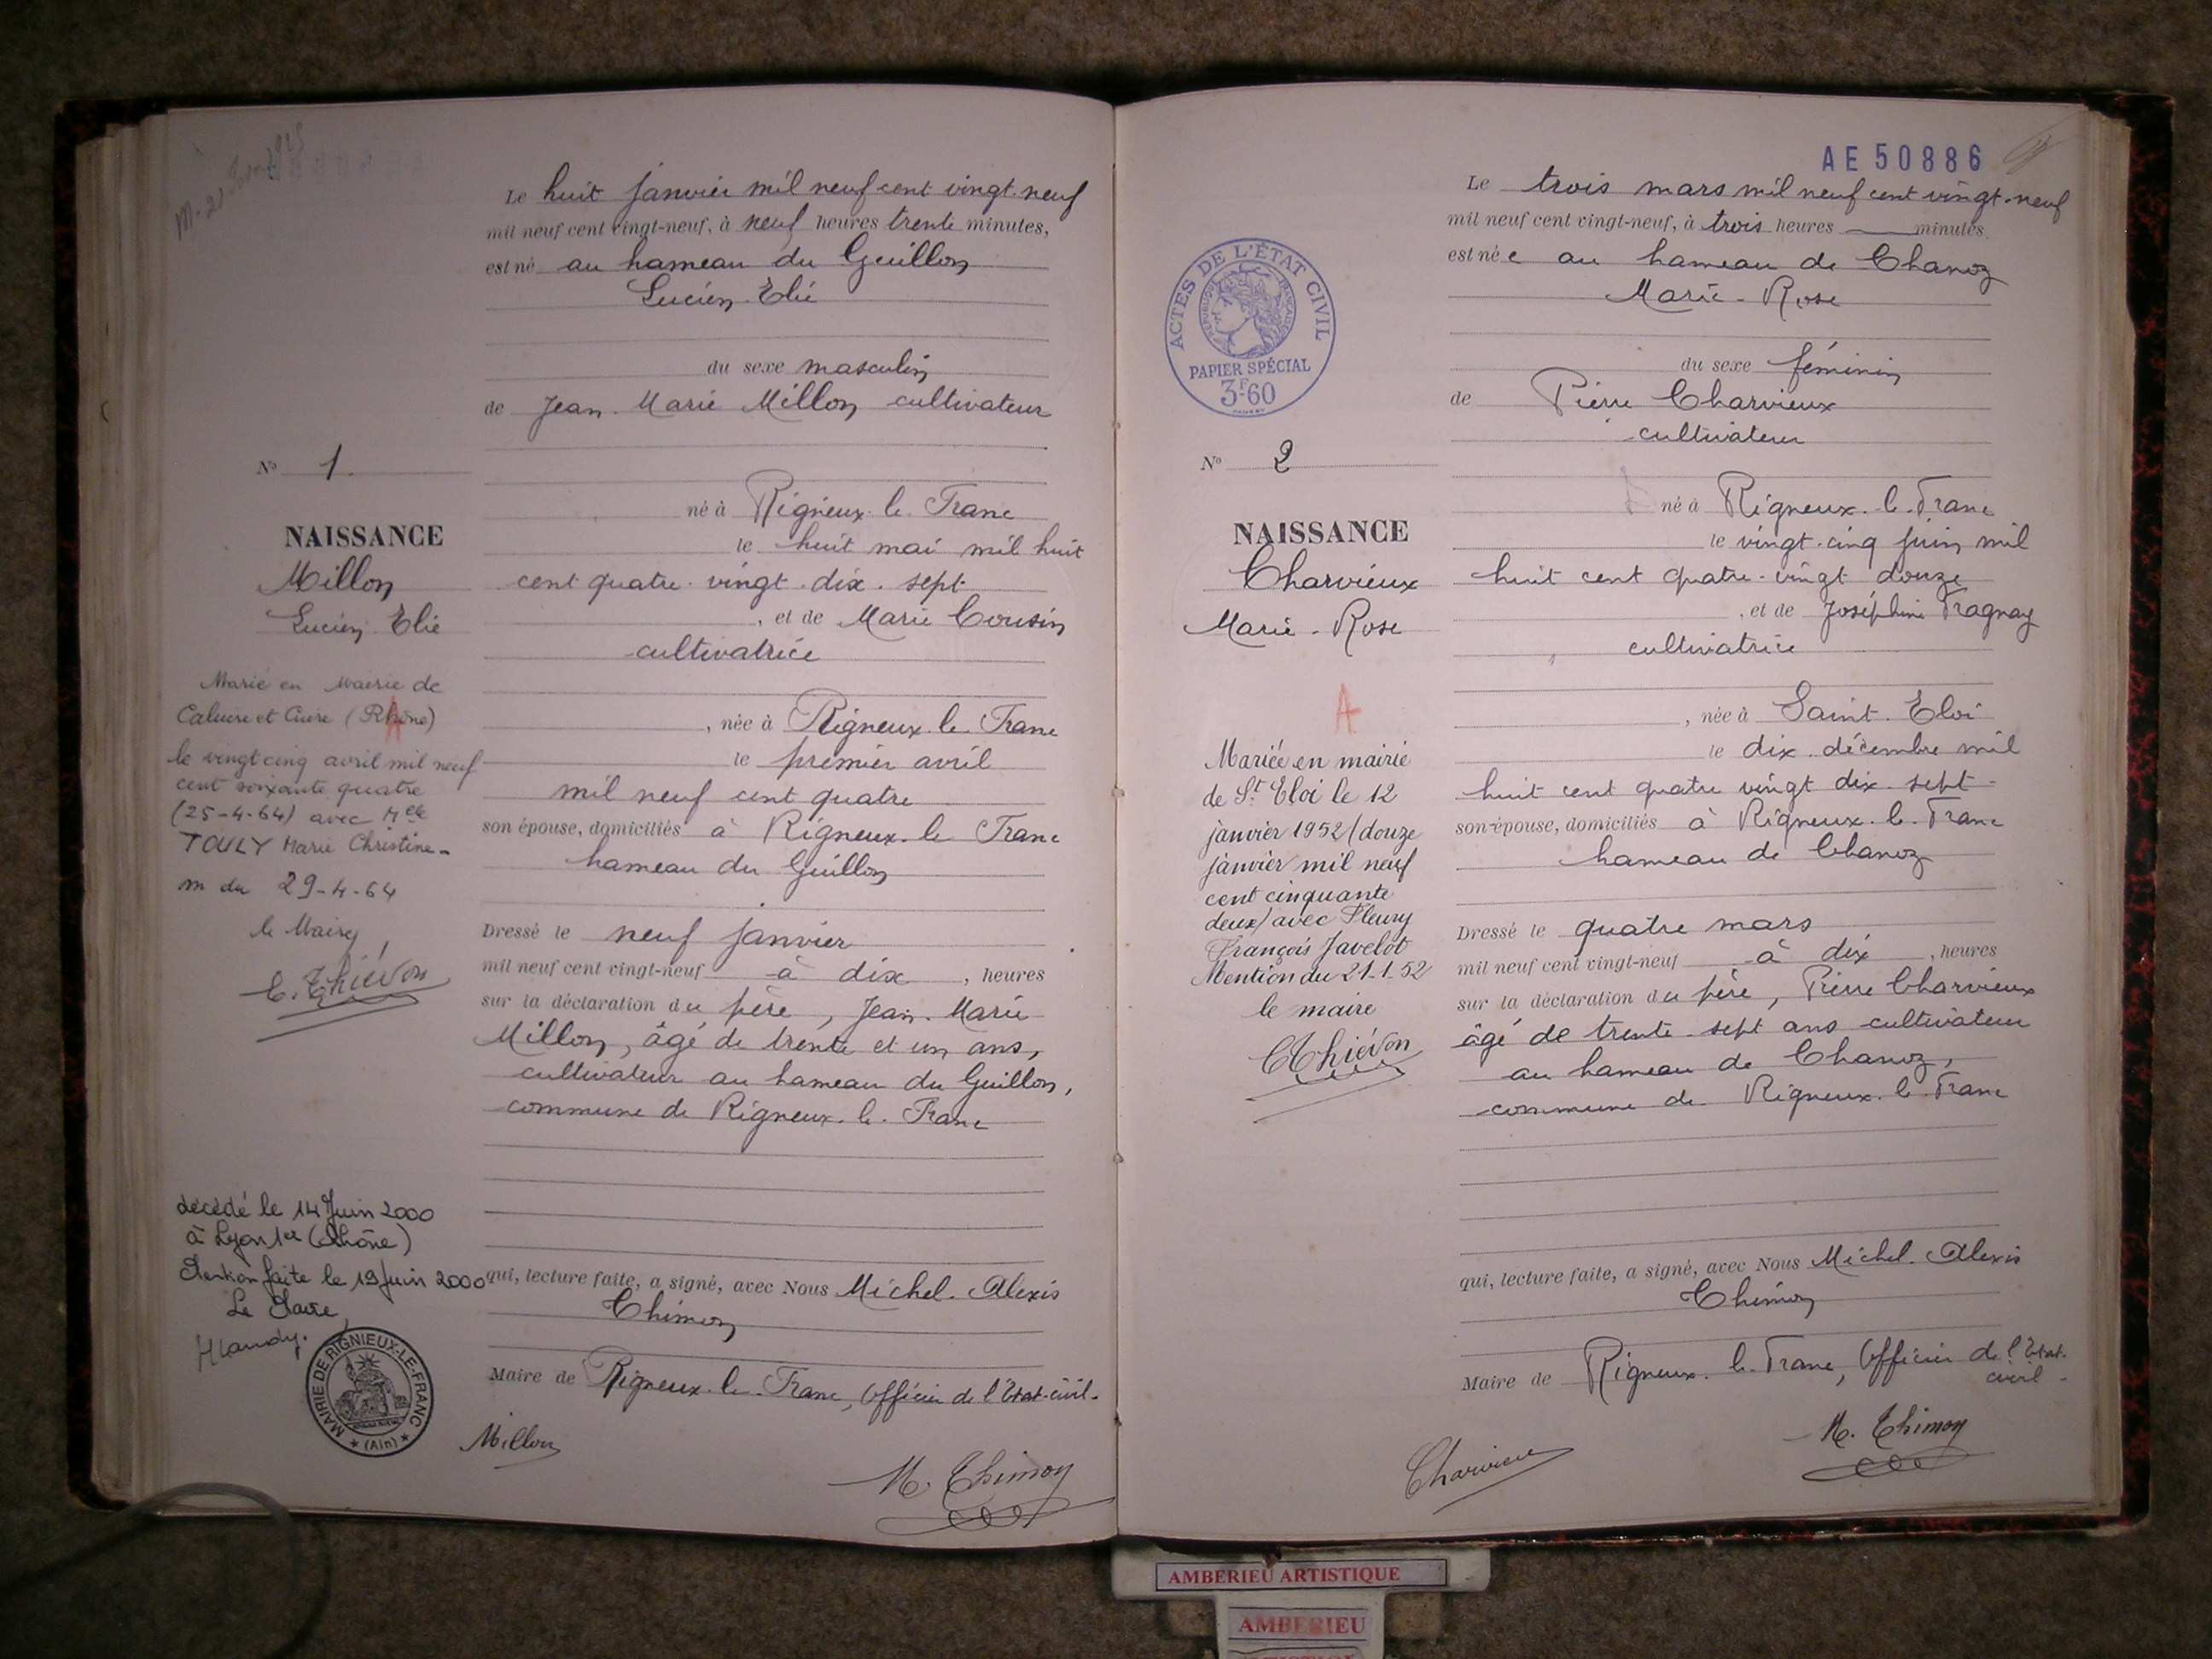 Le huit janvier mil neuf cent vingt-neuf
mil neuf cent vingt-neuf, à neuf heures trente minutes,
est né au hameau du Guillon
Lucien Elie
du sexe masculin
de Jean-Marie Millon cultivateur
né à Rigneux-le-Franc
le huit mai mil huit
cent quatre-vingt-dix-sept
, et de Marie Cousin
cultivatrice
, née à Rigneux-le-Franc
le premier avril
mil neuf cent quatre
son épouse, domiciliés à Rigneux-le-Franc
hameau du Guillon
Dressé le neuf janvier
mil neuf cent vingt-neuf à dix , heures
sur la déclaration du père, Jean-Marie
Millon, âgé de trente et un ans,
cultivateur au hameau du Guillon,
commune de Rigneux-le-Franc
qui, lecture faite, a signé, avec Nous Michel-Alexis
Thimon
Maire de Rigneux-le-Franc, Officier de l'Etat-civil-
Millon
M. Thimon
No 1.
NAISSANCE
Millon
Lucien Elie
Marié en Mairie de
Caluire et Cuire (Rhône)
A
le vingt cinq avril mil neuf
cent soixante quatre
(25-4-64) avec Melle
TOULY Marie Christine-
m du 29-4-64
le Maire,
C. Thiévon
décédé le 14 Juin 2000
à Lyon 1er (Rhône)
Mention faite le 19 Juin 2000
Le Maire,
MAIRIE DE RIGNIEUX-LE-FRANC
* (Ain) *
AE 50886
Le trois mars mil neuf cent vingt-neuf
mil neuf cent vingt-neuf, à trois heures — minutes
est née au hameau de Chanoz
Marie-Rose
du sexe féminin
de Pierre Charvieux
cultivateur
né à Rigneux-le-Franc
le vingt-cinq juin mil
huit cent quatre-vingt douze
, et de Joséphine Fragnay
cultivatrice
, née à Saint-Eloi
le dix décembre mil
huit cent quatre vingt dix-sept-
son épouse, domiciliés à Rigneux-le-Franc
hameau de Chanoz
Dressé le quatre mars
mil neuf cent vingt-neuf à dix , heures
sur la déclaration du père, Pierre Charvieux
âgé de trente-sept ans cultivateur
au hameau de Chanoz,
commune de Rigneux-le-Franc
qui, lecture faite, a signé, avec Nous Michel-Alexis
Thimon
Maire de Rigneux-le-Franc, Officier de l'Etat-
civil-
Charvieux
M. Thimon
ACTES DE L'ÉTAT CIVIL
RÉPUBLIQUE FRANÇAISE
PAPIER SPÉCIAL
3F.60
No 2
NAISSANCE
Charvieux
Marie-Rose
A
Mariée en mairie
de St Eloi le 12
janvier 1952 (douze
janvier mil neuf
cent cinquante
deux) avec Fleury
François Javelot
Mention du 21-1-52
le maire
C Thiévon
AMBERIEU ARTISTIQUE
AMBERIEU